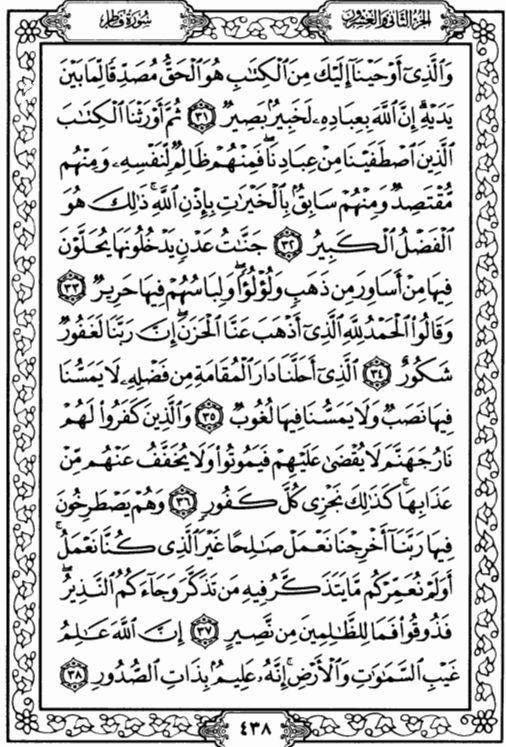 الجزء الثاني والعشرون
سورة فاطر
وَالَّذِي أَوْحَيْنَا إِلَيْكَ مِنَ الْكِتَابِ هُوَ الْحَقُّ مُصَدِّقًا لِمَا بَيْنَ
يَدَيْهِ إِنَّ اللَّهَ بِعِبَادِهِ لَخَبِيرٌ بَصِيرٌ ٣١ ثُمَّ أَوْرَثْنَا الْكِتَابَ
الَّذِينَ اصْطَفَيْنَا مِنْ عِبَادِنَا فَمِنْهُمْ ظَالِمٌ لِّنَفْسِهِ وَمِنْهُم
مُّقْتَصِدٌ وَمِنْهُمْ سَابِقٌ بِالْخَيْرَاتِ بِإِذْنِ اللَّهِ ذَٰلِكَ هُوَ
الْفَضْلُ الْكَبِيرُ ٣٢ جَنَّاتُ عَدْنٍ يَدْخُلُونَهَا يُحَلَّوْنَ
فِيهَا مِنْ أَسَاوِرَ مِن ذَهَبٍ وَلُؤْلُؤًا وَلِبَاسُهُمْ فِيهَا حَرِيرٌ ٣٣
وَقَالُوا الْحَمْدُ لِلَّهِ الَّذِي أَذْهَبَ عَنَّا الْحَزَنَ إِنَّ رَبَّنَا لَغَفُورٌ
شَكُورٌ ٣٤ الَّذِي أَحَلَّنَا دَارَ الْمُقَامَةِ مِن فَضْلِهِ لَا يَمَسُّنَا
فِيهَا نَصَبٌ وَلَا يَمَسُّنَا فِيهَا لُغُوبٌ ٣٥ وَالَّذِينَ كَفَرُوا لَهُمْ
نَارُ جَهَنَّمَ لَا يُقْضَىٰ عَلَيْهِمْ فَيَمُوتُوا وَلَا يُخَفَّفُ عَنْهُم مِّنْ
عَذَابِهَا كَذَٰلِكَ نَجْزِي كُلَّ كَفُورٍ ٣٦ وَهُمْ يَصْطَرِخُونَ
فِيهَا رَبَّنَا أَخْرِجْنَا نَعْمَلْ صَالِحًا غَيْرَ الَّذِي كُنَّا نَعْمَلُ
أَوَلَمْ نُعَمِّرْكُم مَّا يَتَذَكَّرُ فِيهِ مَن تَذَكَّرَ وَجَاءَكُمُ النَّذِيرُ
فَذُوقُوا فَمَا لِلظَّالِمِينَ مِن نَّصِيرٍ ٣٧ إِنَّ اللَّهَ عَالِمُ
غَيْبِ السَّمَاوَاتِ وَالْأَرْضِ إِنَّهُ عَلِيمٌ بِذَاتِ الصُّدُورِ ٣٨
٤٣٨